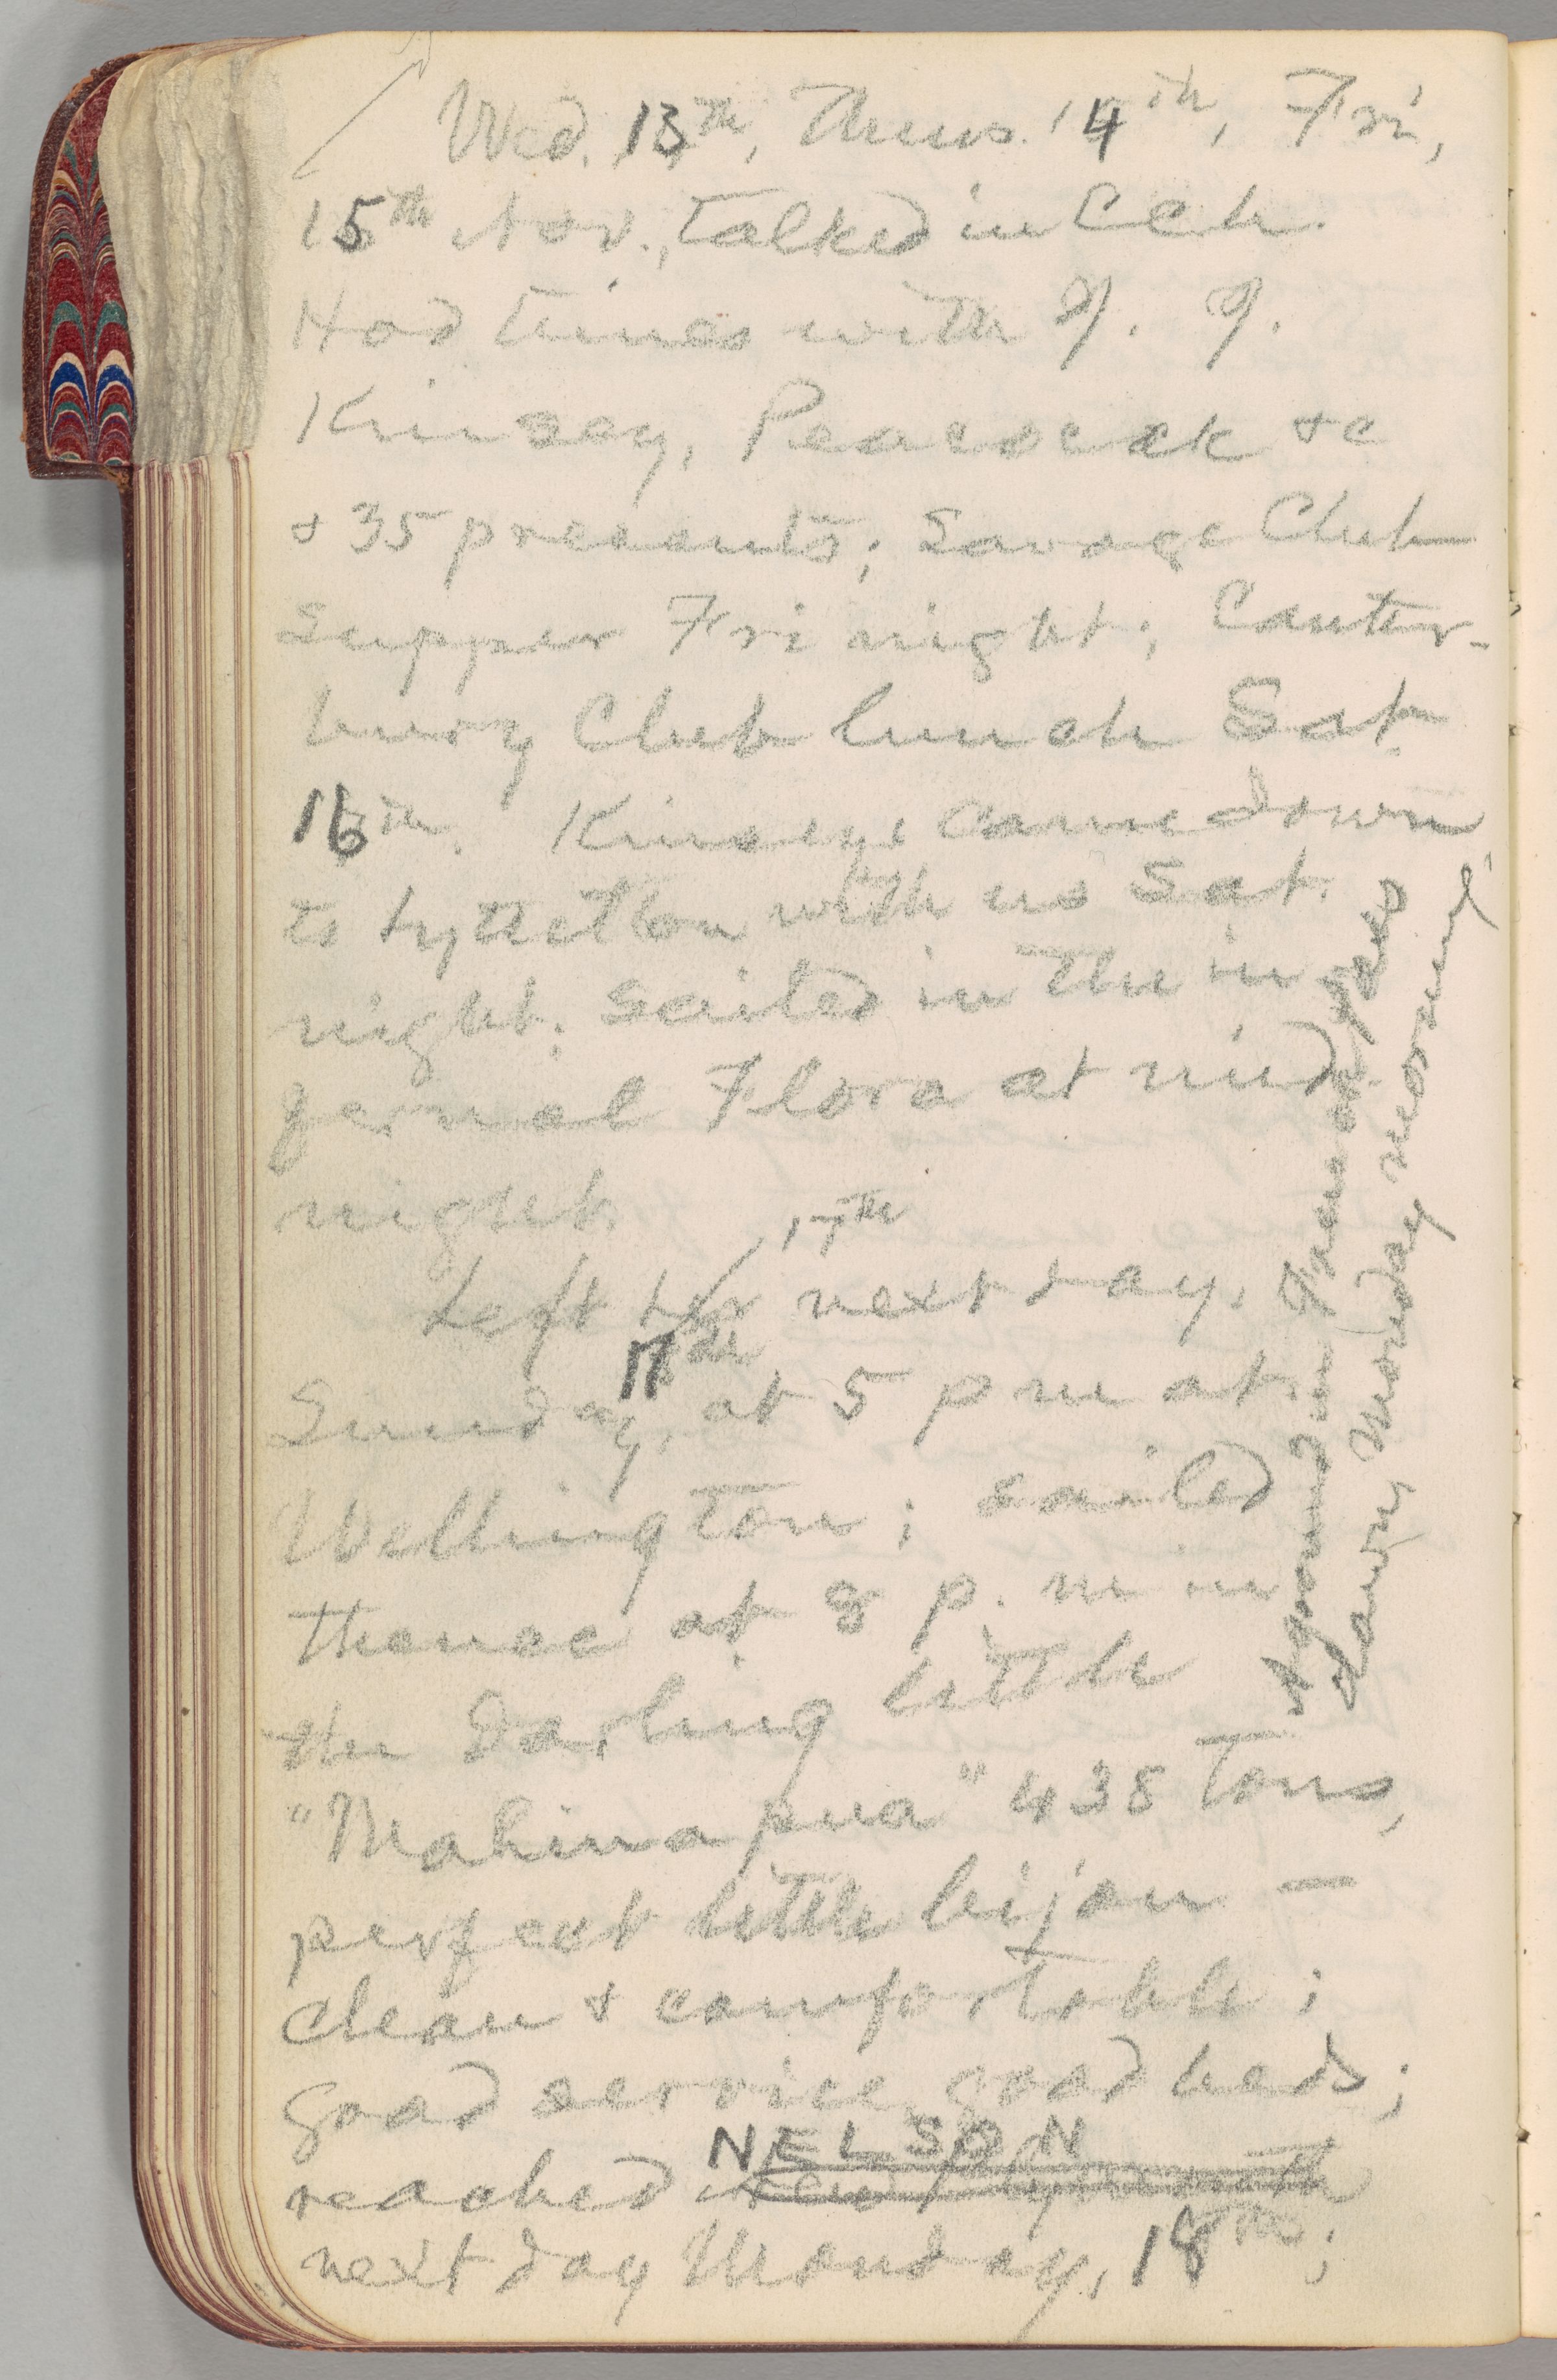 Wed. 13th, Thurs. 14th, Fri,
15th Nov., talked in CCh.
Had times with J. J.
Kinsey, Peacock &c
& 35 presents; Savage Club
Supper Fri night; Canter-
bury Club lunch Sat
16th. Kinseys came down
to Lyttelton with us Sat.
night. Sailed in the in
fernal Flora at mid-
night.
17th
Left her next day,
17th
Sunday, at 5 p m at
Wellington; sailed
thence at 8 p. m in
the darling little
"Mahinapua" 438 tons,
perfect little bijou —
clean & comfortable;
good service, good beds;
NELSON
reached New Plymouth
next day Monday, 18th;
through French pass
dawn, Monday morning